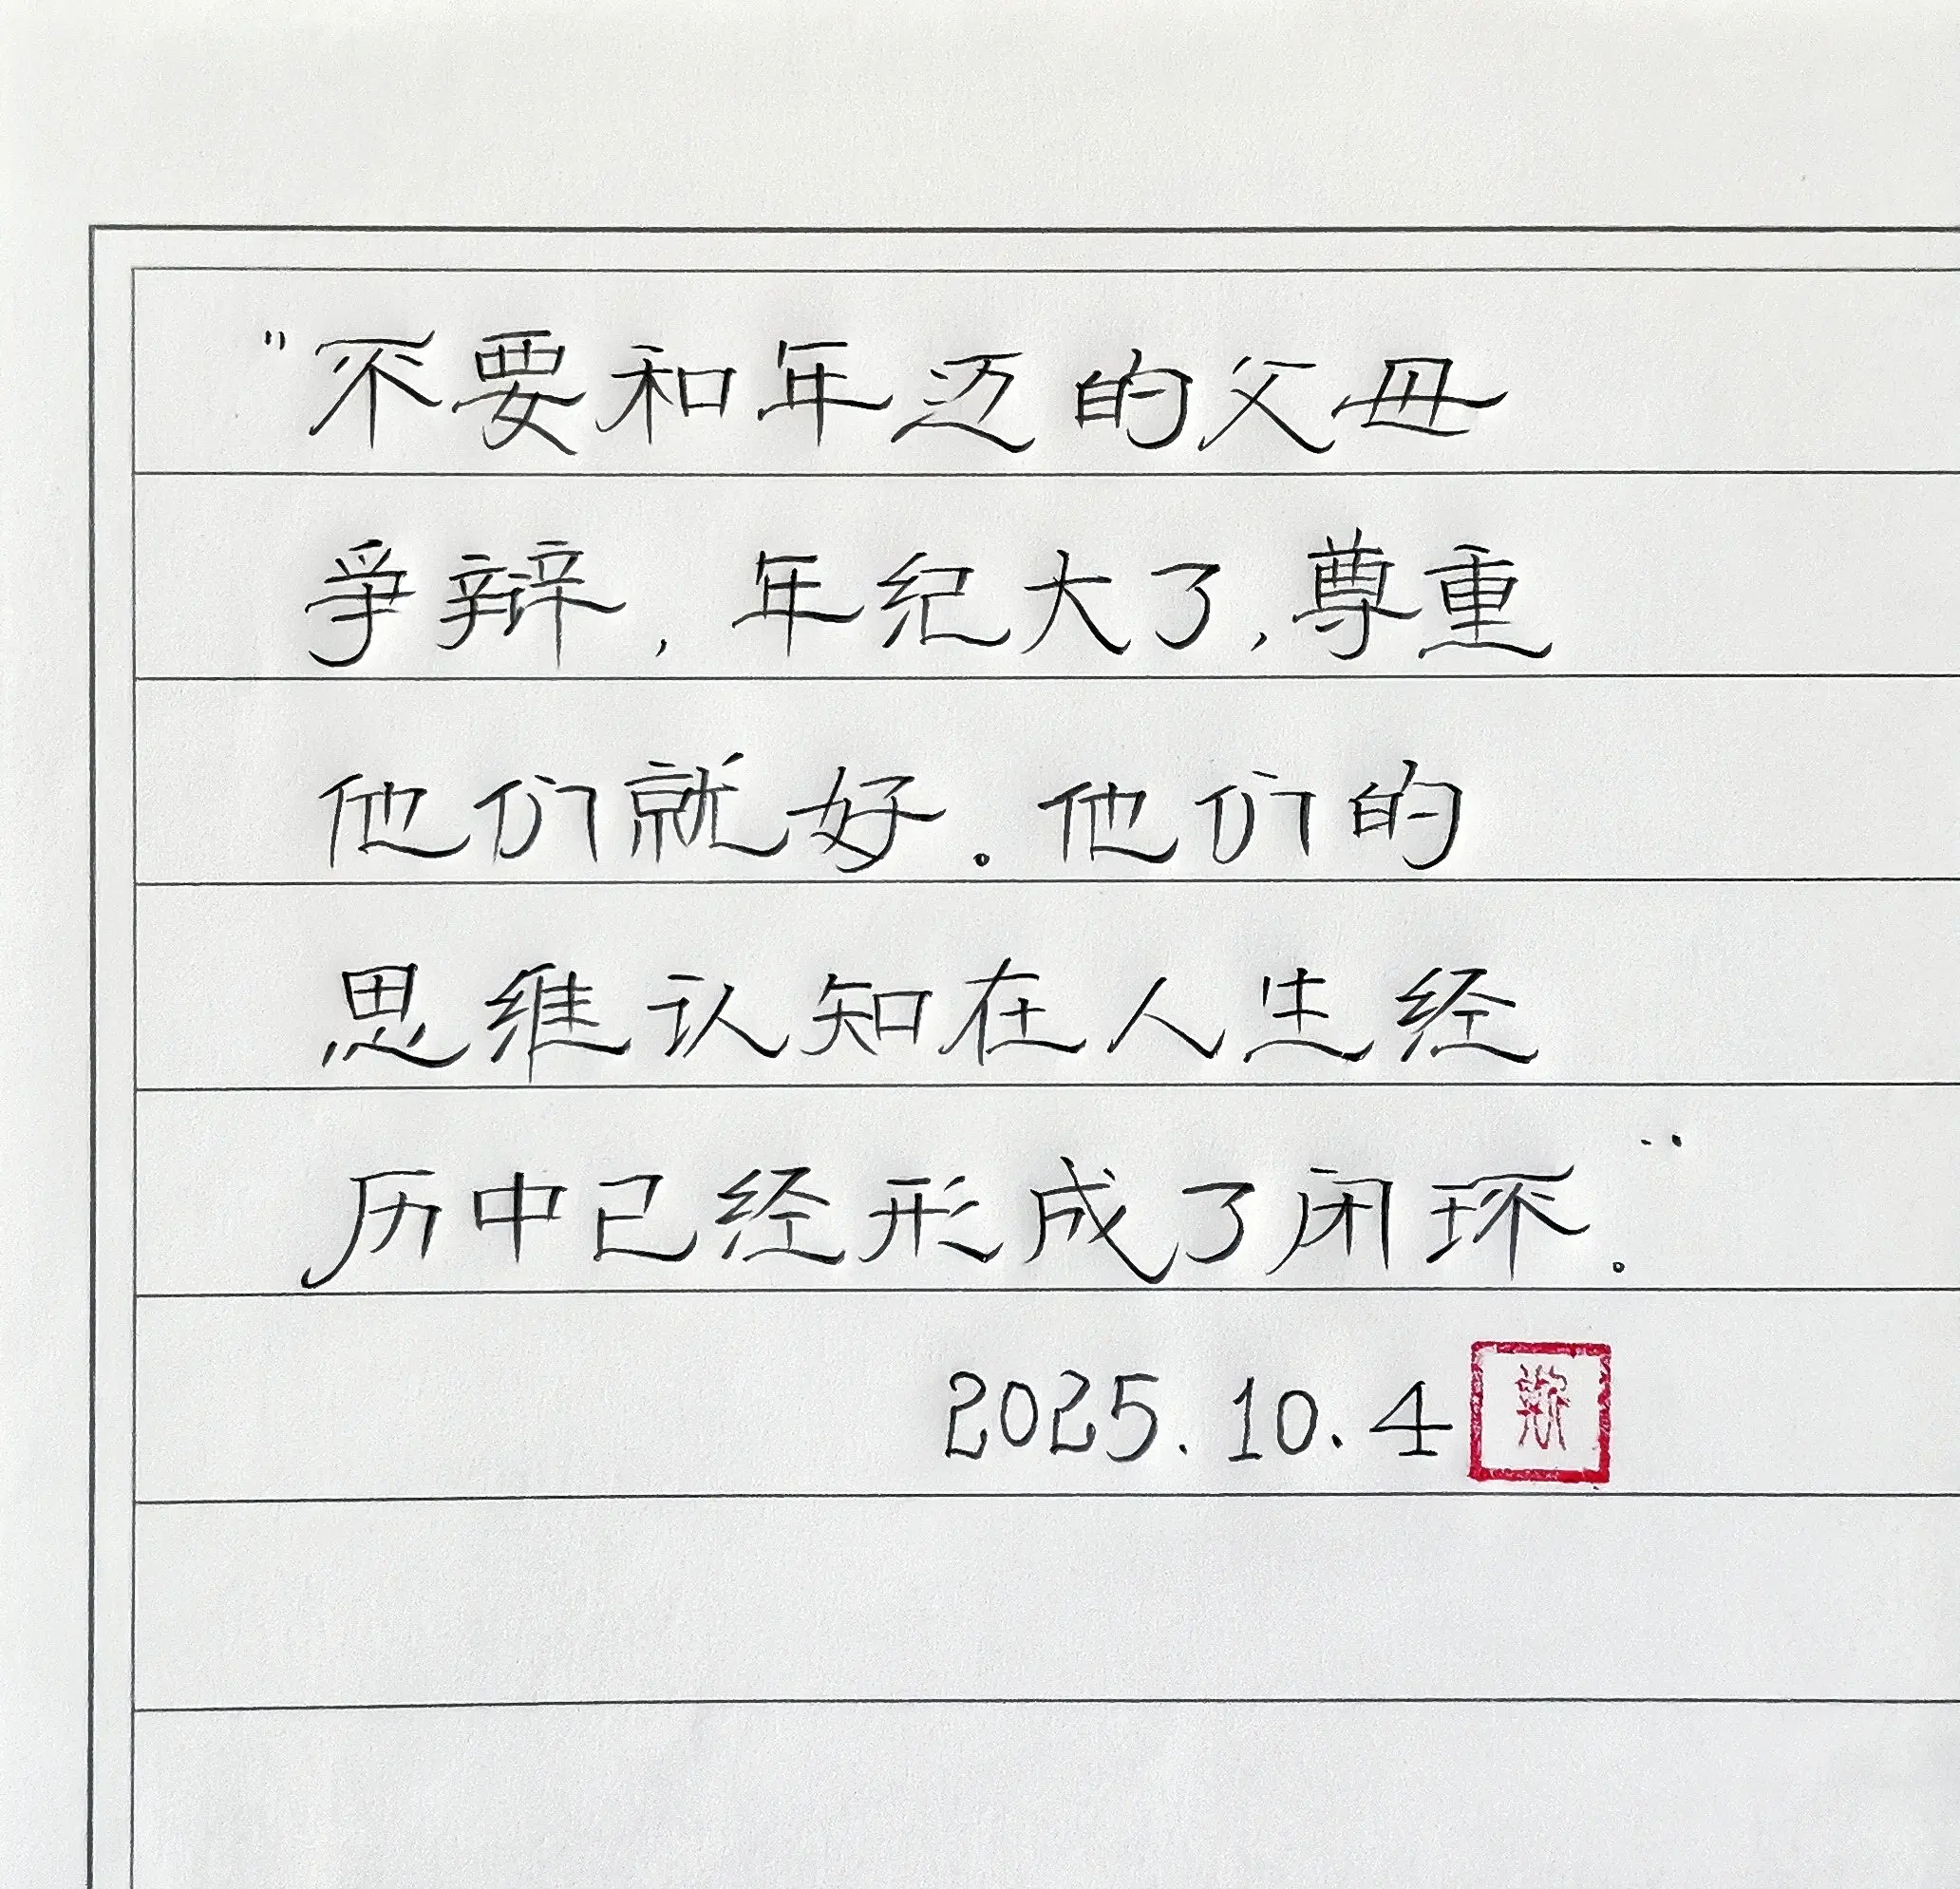 "不要和年迈的父母
争辩,年纪大了,尊重
他们就好。他们的
思维认知在人生经
历中已经形成了闭环。"
2025.10.4